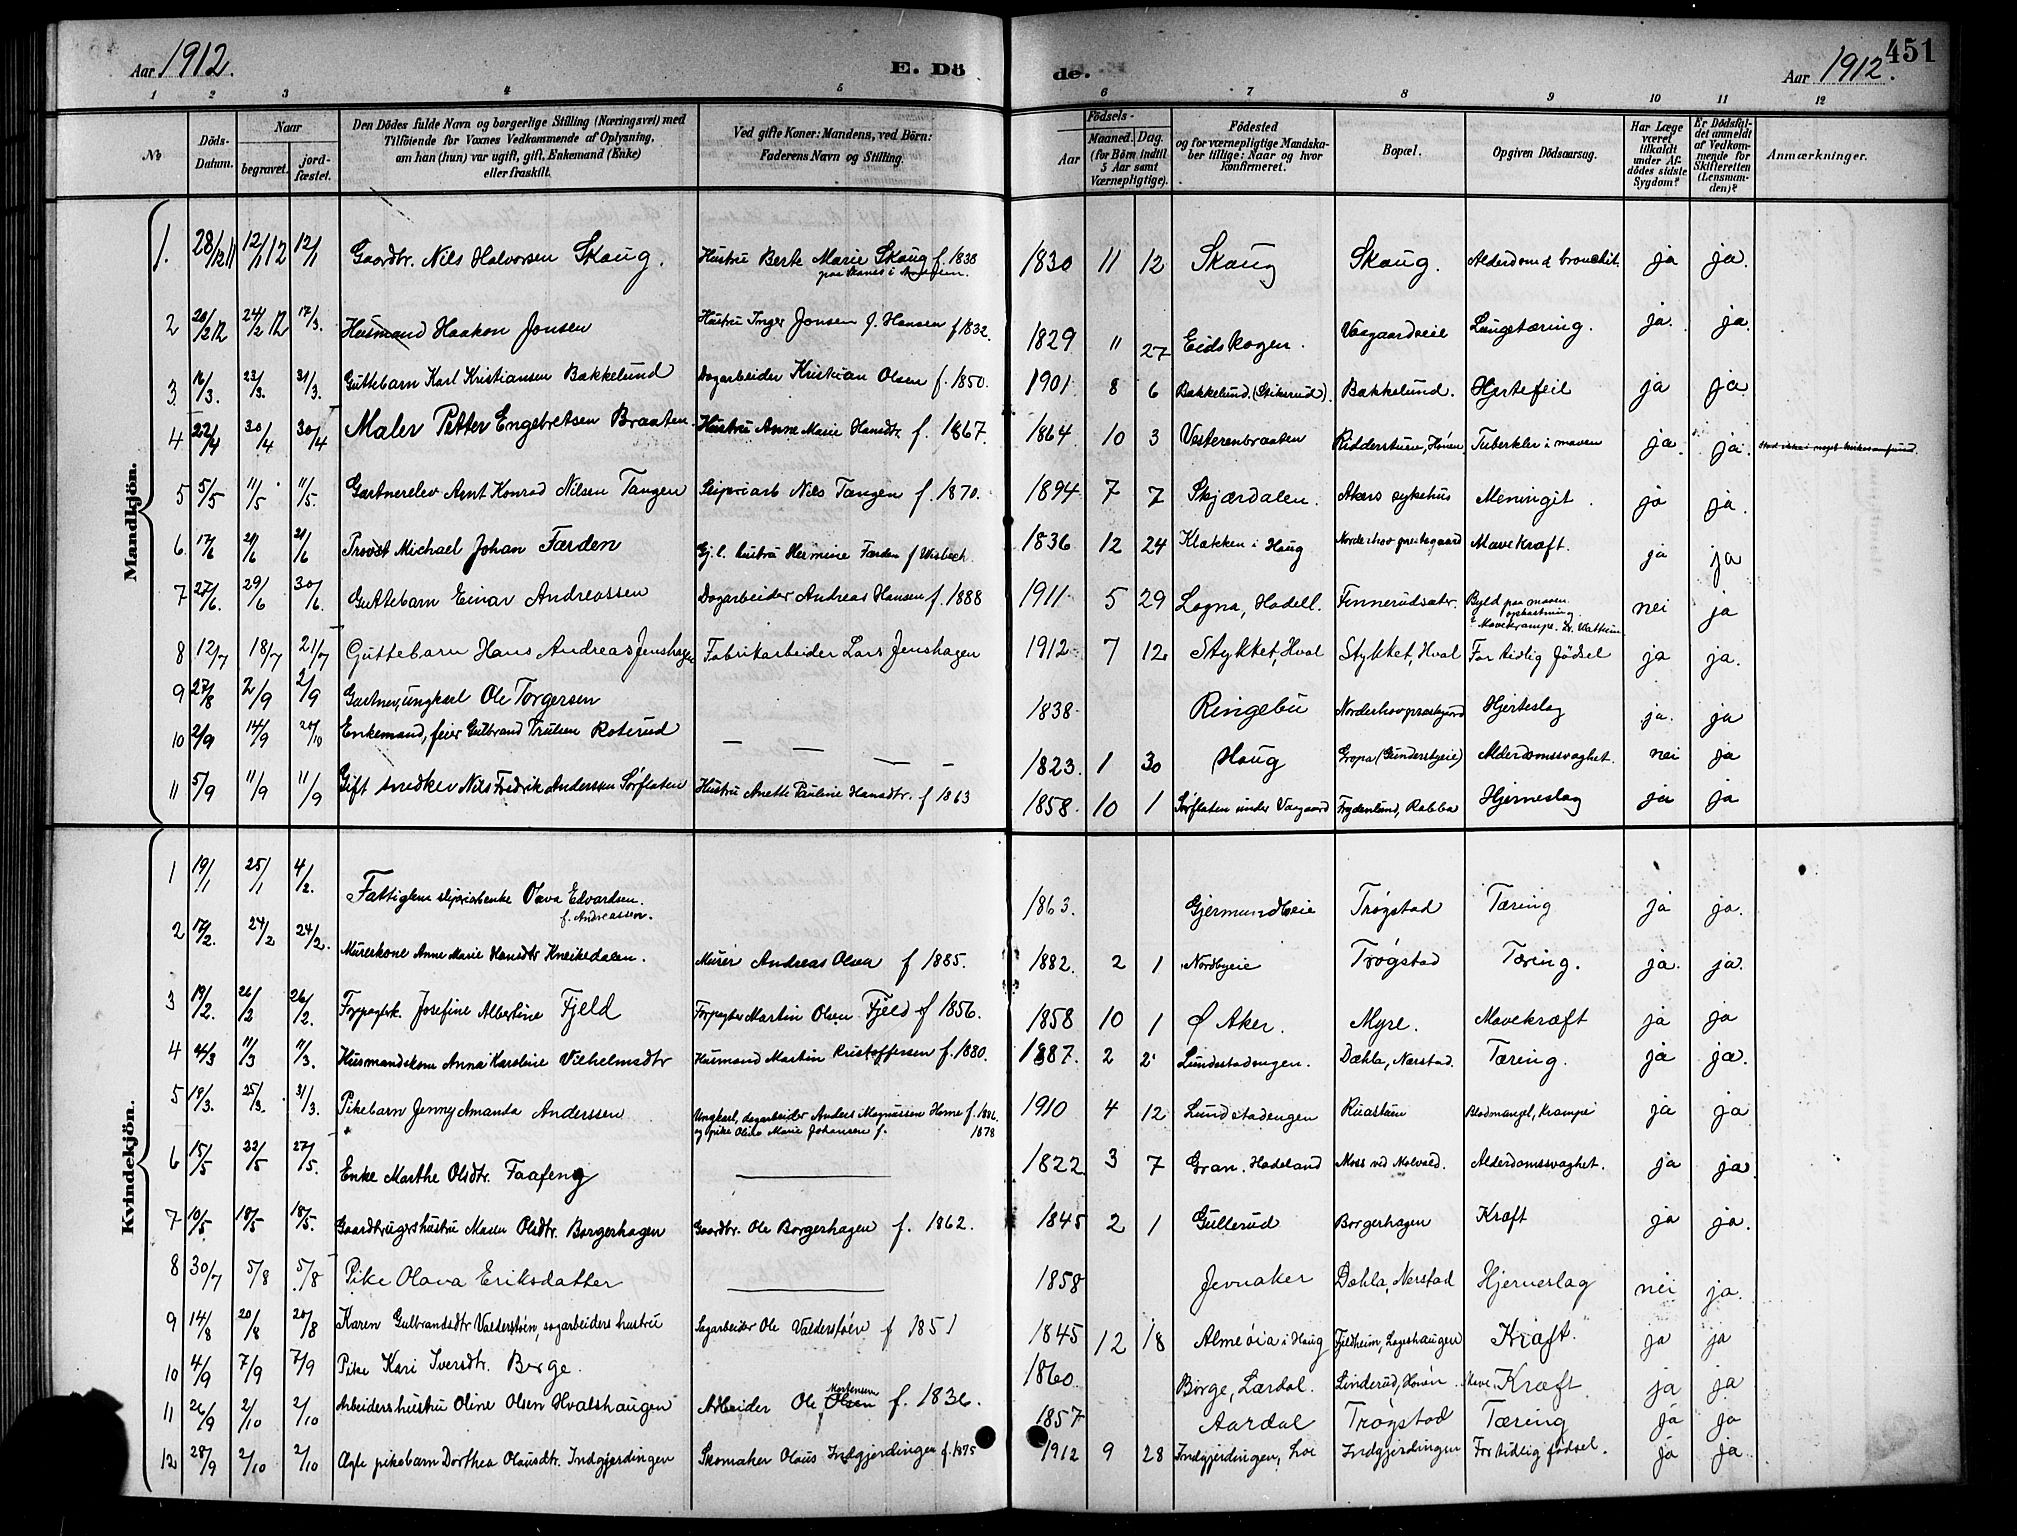 Aar 1912. E. Dö de. Aar 1912. 451
1 2 3 4 5 6 7 8 9 10 11 12
No
Döds-Datum.
Naar
begravet. jordfæstet.
Den Dödes fulde Navn og borgerlige Stilling (Næringsvei) med
Tilföiende for Voxnes Vedkommende af Oplysning,
om han (hun) var ugift, gift, Enkemand (Enke)
eller fraskilt.
Ved gifte Koner: Mandens, ved Börn:
Faderens Navn og Stilling.
Födsels-
Aar
Maaned. Dag.
(for Börn indtil
5 Aar samt
Værnepligtige).
Födested
og for værnepligtige Mandska-
ber tillige: Naar og hvor
konfirmeret.
Bopæl.
Opgiven Dödsaarsag.
Har Læge
været
tilkaldt
under Af-
dödes sidste
Sygdom?
Er Dödsfal-
det anmeldt
af Vedkom-
mende for
Skifteretten
(Lensman-
den)?
Anmærkninger.
Mandkjön.
1. 28/12 11 12/1 12 12/1 Gaardbr. Nils Halvorsen Skaug. Hustru Berte Marie Skaug f. 1830 1830 11 12 Skaug Skaug. Alderdom & bronchit. ja ja.
2 20/2 12 24/2 12 17/3. Husmand Haakon Jonsen Hustru Inger Jonsen f. Hansen f 1832. 1829 11 27 Eidskogen. Vaagaardseie Lungetæring. ja. ja
3. 16/3. 23/3. 31/3. Guttebarn Karl Kristiansen Bakkelund Dagarbeider Kristian Olsen f. 1850. 1901 8 6 Bakkelund. (Stikerud). Bakkelund. Hjertefeil ja ja
4 22/4 30/4 30/4 Maler Petter Engebretsen Braaten. Hustru Anne Marie Hansdtr. f. 1867. 1864 10 3 Vesterenbraaten Ridderstuen, Hønen Tuberkler i maven ja. ja.
5 5/5 11/5 11/5. Gartnerelev Arnt Konrad Nilsen Tangen Sliperiarb Nils Tangen f. 1870. 1894 7 7 Skjærdalen. Akers sykehus Meningit. ja ja.
6. 17/6 21/6 21/6 Provst Michael Johan Færden Gj. l. hustru Hermine Færden f Wisbech. 1836 12 24 Klækken i Haug Norderhov prestegaard Mavekræft. ja ja
7 27/6. 29/6 30/6. Guttebarn Einar Andreassen Dagarbeider Andreas Hansen f. 1888 1911 5 29 Lagna, Hadell. Finnerudsæter. Byld paa maven nei ja
8 12/7 18/7 21/7 Guttebarn Hans Andreas Jenshagen Fabrikarbeider Lars Jenshagen 1912 7 12 Stykket, Hval Stykket, Hval For tidlig fødsel ja ja.
9 27/8 2/9 2/9 Gartner, ungkarl Ole Torgersen 1838 Ringebu Norderhov prestgaard Hjerteslag ja. ja
10 2/9 14/9 20/10 Enkemand, feier Gulbrand Trulsen Roterud — — — — 1823. 1 30 Haug Gropa (Gunderbyeie) Alderdomssvaghet. nei ja
11 5/9 11/9 11/9 Gift snedker Nils Fredrik Anderssen Sørflaten Hustru Anette Pauline Hansdtr. f 1863 1858. 10 1 Sørflaten under Vaagaard Frydenlund, Rabba Hjerneslag ja ja
Kvindekjön.
1 19/1 25/1 4/2. Fattiglem sliperiarbenke Olava Edvardsen. f. Andreassen. 1863. Gjermundboeie Trøgstad Tæring ja ja.
2 17/2. 24/2 24/2. Murerkone Anne Marie Hansdtr Kneikedalen. Murer Andreas Olsen f 1885. 1882. 2 1 Nordbyeie Trøgstad Tæring. ja. ja.
3 19/2. 26/2 26/2. Forpagterk. Josefine Albertine Fjeld Forpagter Martin Olsen Fjeld f 1856. 1858 10 1 Ø Aker. Myre. Mavekræft ja ja
4 4/3 11/3 11/3. Husmandskone Anna Karoline Vilhelmsdtr Husmand Martin Kristoffersen f. 1880. 1887. 2 2 Lundestadengen. Dæhla, Nærstad. Tæring. ja ja.
5 19/3. 25/3. 31/3. Pikebarn Jenny Amanda Anderssen Ungkarl, dagarbeider Anders Magnussen Horne f. 1886. og pike Oline Marie Johansen f. 1878 1910 4 12 Lundstadengen Ruastuen Blodmangel, Krampe ja ja
6 15/5 22/5 27/5. Enke Marthe Olsdtr. Faafeng — 1822 3 7 Gran. Hadeland Moss ved Molvald. Alderdomssvaghet. ja ja
7 10/5. 18/5 18/5. Gaardbrugershustru Maren Olsdtr. Borgerhagen Gaardbr. Ole Borgerhagen f. 1862. 1845 2 1 Gullerud Borgerhagen Kræft ja ja.
8 30/7 5/8 5/8 Pike Olava Eriksdatter — 1858 Jevnaker Dæhla, Nærstad Hjerneslag nei ja.
9 14/8 20/8 20/8 Karen Gulbrandsdtr Valderstøen, sagarbeiders hustru Sagarbeider Ole Valderstøen f 1851 1845 12 18 Almeøia i Haug Fjeldheim, Lagshaugen Kræft. ja ja
10 4/9 7/9 7/9 Pike Kari Iversdtr. Borge. 1860 Borge, Lærdal. Linderud, Hønen Mave, Kræft ja ja
11 26/9 2/10 2/10 Arbeidershustru Oline Olsen Hvalshaugen Arbeider Ole Olsen Mortensen f. 1836. 1857 Aardal Trøgstad Tæring ja ja
12 28/9 2/10 2/10 Ægte pikebarn Dorthea Olausdtr. Indgjerdingen Skomaker Olaus Indgjerdingen f. 1875 1912 9 28 Indgjerdingen, Lore Indgjerdingen For tidlig fødsel. ja ja